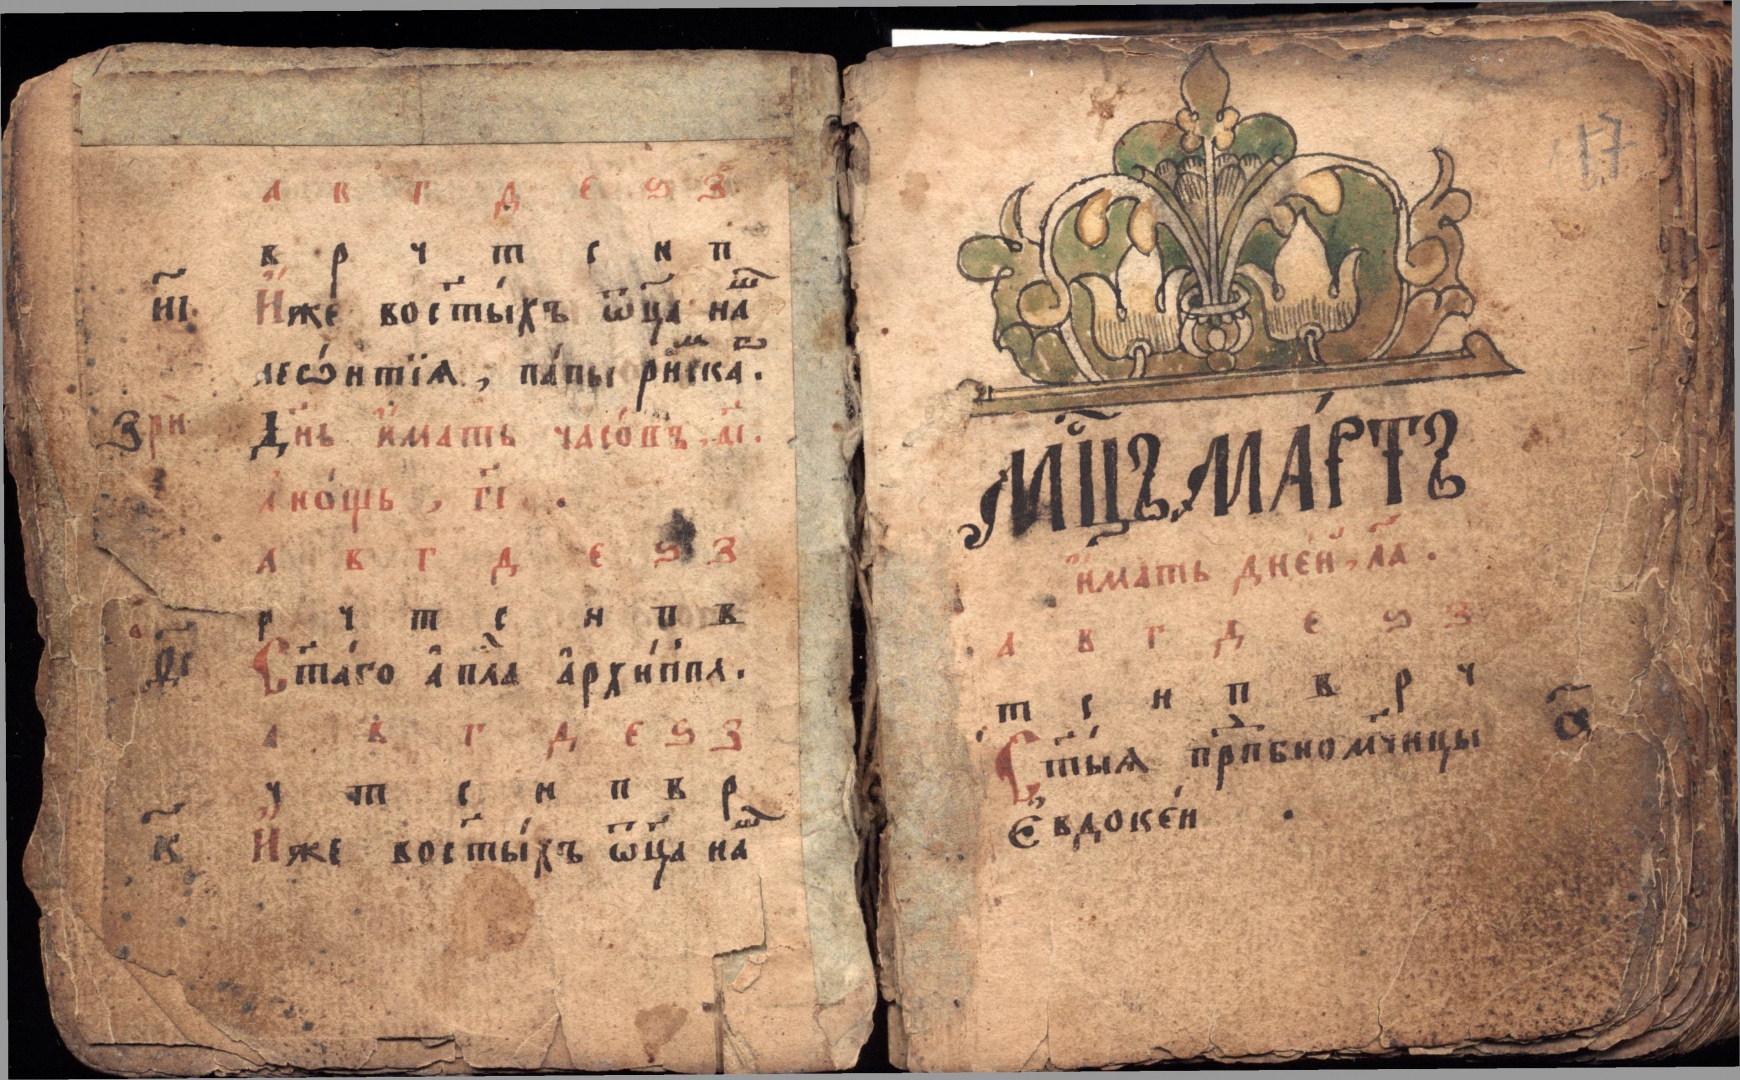 а в г д є ѕ з
в р ч т с н п
н҃і. И҆́же во ст҃ы́хъ ѻ҆т҃ца̀ на́ш
леѡ́нтїѧ, па́пы ри́мска.
Зрѝ Д҃нь и҆́мать часо́въ, а҃і.
а но́щь, г҃і.
а в г д є ѕ з
р ч т с н п в
ѳ҃і Ст҃а́го а҆п҃ла а҆рхи́ппа.
а в г д є ѕ з
ч т с н п в р
к҃ И҆́же во ст҃ы́хъ ѻ҆т҃ца̀ на́ш
17
М҃цъ ма́ртъ
и҆́мать дне́й, л҃а.
а в г д є ѕ з
т с н п в р ч
Ст҃ы́ѧ прп҃бномч҃ницы а҃
є҆вдоке́и